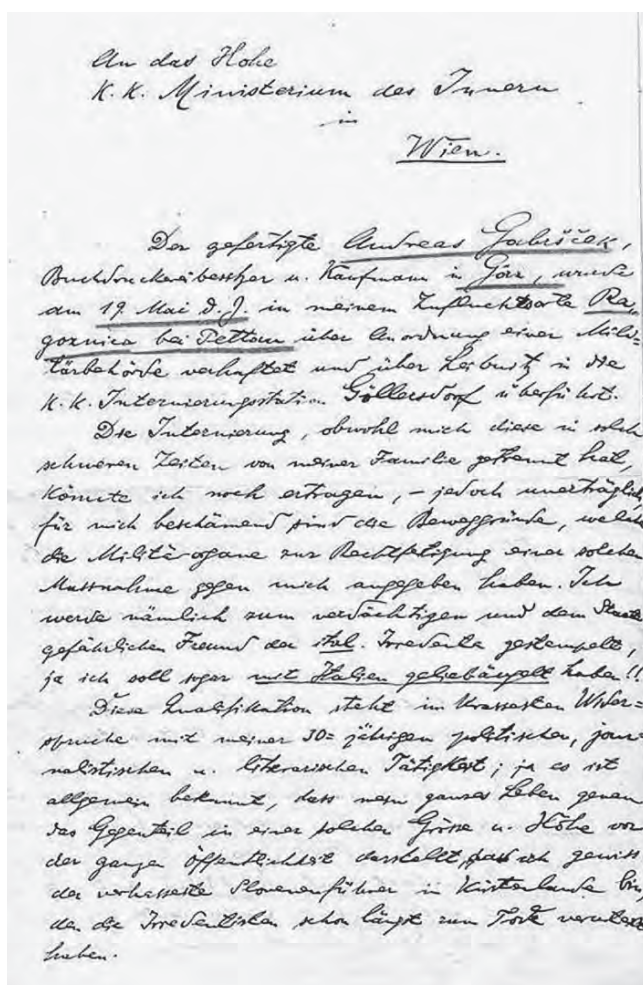 An das Hohe
K. K. Ministerium des Innern
in
Wien.
Der gefertigte Andreas Gabršček,
Buchdruckereibesitzer u. Kaufmann in Görz, wurde
am 19. Mai d. J. in meinem Zufluchtsorte Ra-
goznica bei Pettau über Anordnung einer Mili-
tärbehörde verhaftet und über Leibnitz in die
K. K. Internierungsstation Göllersdorf überführt.
Die Internierung, obwohl mich diese in solch
schweren Zeiten von meiner Familie getrennt hat,
könnte ich noch ertragen, – jedoch unerträglich
für mich beschämend sind die Beweggründe, welche
die Militärorgane zur Rechtfertigung einer solchen
Massnahme gegen mich angegeben haben. Ich
werde nämlich zum verdächtigen und dem Staate
gefährlichen Freund der ital. Irredenta gestempelt,
ja ich soll sogar mit Italien geliebäugelt haben!!
Diese Qualifikation steht im krassesten Wider=
spruche mit meiner 30= jährigen politischen, jour-
nalistischen u. literarischen Tätigkeit; ja es ist
allgemein bekannt, dass mein ganzes Leben genau
das Gegenteil in einer solchen Grösse u. Höhe vor
der ganzen Öffentlichkeit darstellt, dass ich gewiss
der verhassteste Slovenenführer im Küstenlande bin,
den die Irredentisten schon längst zum Tode verurteilt
haben.